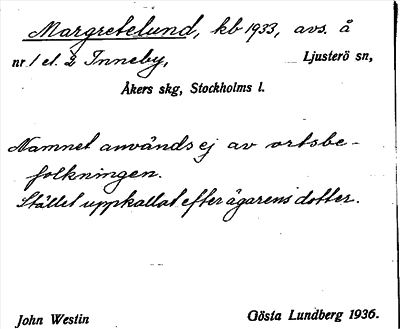 Margretelund, kb 1933, avs. å
nr 1 el. 2 Inneby, Ljusterö sn,
Åkers skg, Stockholms l.
Namnet används ej av ortsbe-
folkningen.
Stället uppkallat efter ägarens dotter.
John Westin Gösta Lundberg 1936.